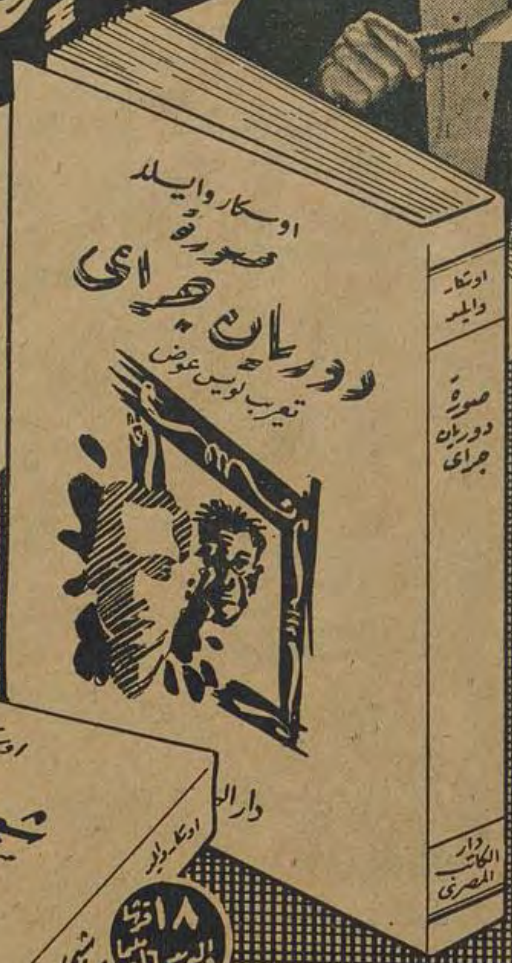 اوسكار وايلد
صورة
دوريان جراى
تعريب لويس عوض
دار
اوسكار
وايلد
صورة
دوريان
جراى
دار
الكاتب
المصرى
اوسكار وايلد
١٨ قرشا